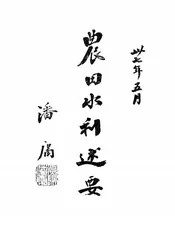 卅七年五月
農田水利述要
潘